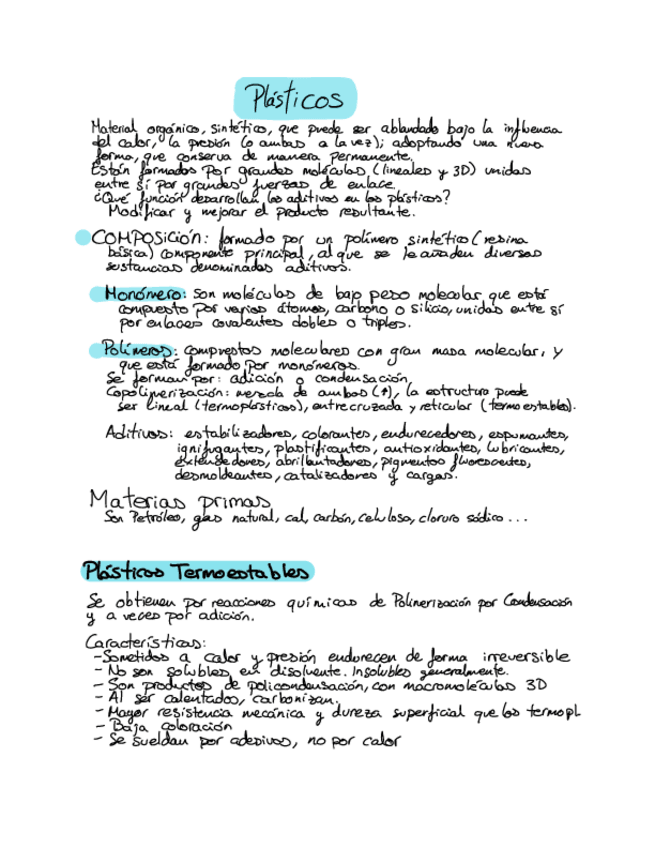 Plásticos
Material orgánico, sintético, que puede ser ablandado bajo la influencia
del calor, la presión (o ambas a la vez); adoptando una nueva
forma, que conserva de manera permanente.
Están formados por grandes moléculas (lineales y 3D) unidas
entre sí por grandes fuerzas de enlace.
¿Qué función desarrollan los aditivos en los plásticos?
Modificar y mejorar el producto resultante.
COMPOSICIÓN: formado por un polímero sintético (resina
básica) componente principal, al que se le añaden diversas
sustancias denominadas aditivos.
Monómero: son moléculas de bajo peso molecular que está
compuesto por varios átomos, carbono o silicio, unidas entre sí
por enlaces covalentes dobles o triples.
Polímeros: compuestos moleculares con gran masa molecular, y
que está formado por monómeros.
Se forman por: adición o condensación
Copolimerización: mezcla de ambos (↑), la estructura puede
ser lineal (termoplásticos), entrecruzada y reticular (termoestables).
Aditivos: estabilizadores, colorantes, endurecedores, espumantes,
ignifugantes, plastificantes, antioxidantes, lubricantes,
extendedores, abrillantadores, pigmentos fluorescentes,
desmoldeantes, catalizadores y cargas.
Materias primas
Son Petróleo, gas natural, cal, carbón, celulosa, cloruro sódico ...
Plásticos Termoestables
Se obtienen por reacciones químicas de Polimerización por Condensación
y a veces por adición.
Características:
- Sometidos a calor y presión endurecen de forma irreversible
- No son solubles en disolvente. Insolubles generalmente.
- Son productos de policondensación, con macromoléculas 3D
- Al ser calentados, carbonizan.
- Mayor resistencia mecánica y dureza superficial que los termopl
- Baja coloración
- Se sueldan por adesivos, no por calor